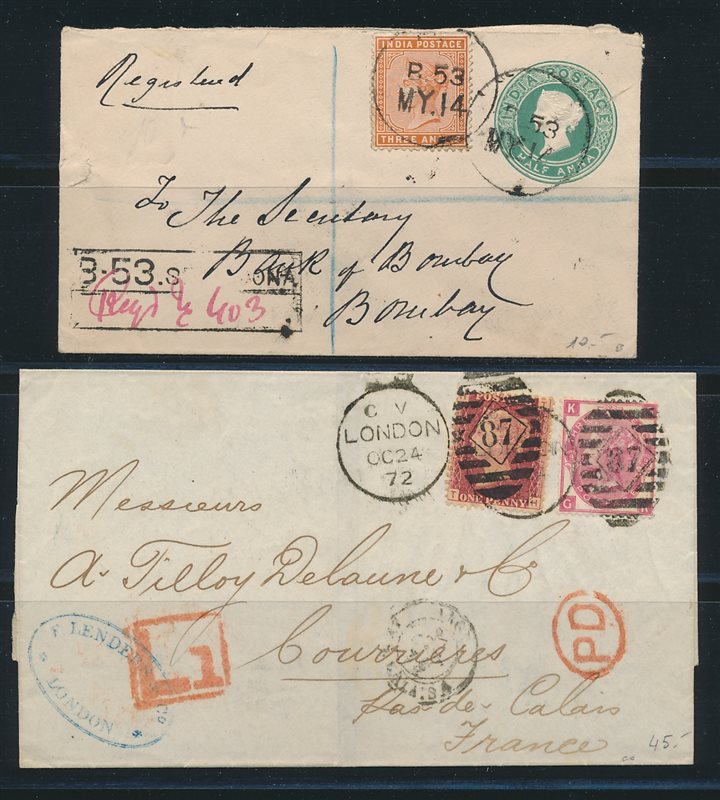 Registered
INDIA POSTAGE
THREE AN
B 53
MY.14
INDIA POSTAGE
HALF ANNA
53
MY.14
To The Secretary
Bank of Bombay
Bombay
B-53.S ONA
Regd № 403
10.-
C V
LONDON
OC 24
72
POST
87
T ONE PENNY H
K
87
G
Messieurs
A. Tilloy Delaune & Co
Courrières
Pas-de-Calais
France
F. LENDERS & Co
LONDON
L1
CALAIS
PD
45.-